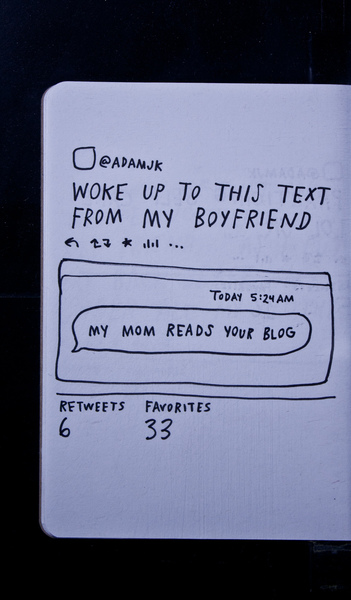 @ADAMJK
WOKE UP TO THIS TEXT
FROM MY BOYFRIEND
...
TODAY 5:24 AM
MY MOM READS YOUR BLOG
RETWEETS FAVORITES
6 33